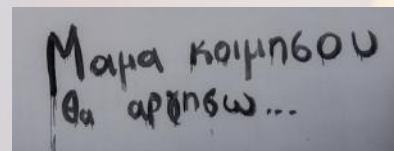 Μαμα κοιμησου
θα αργησω...